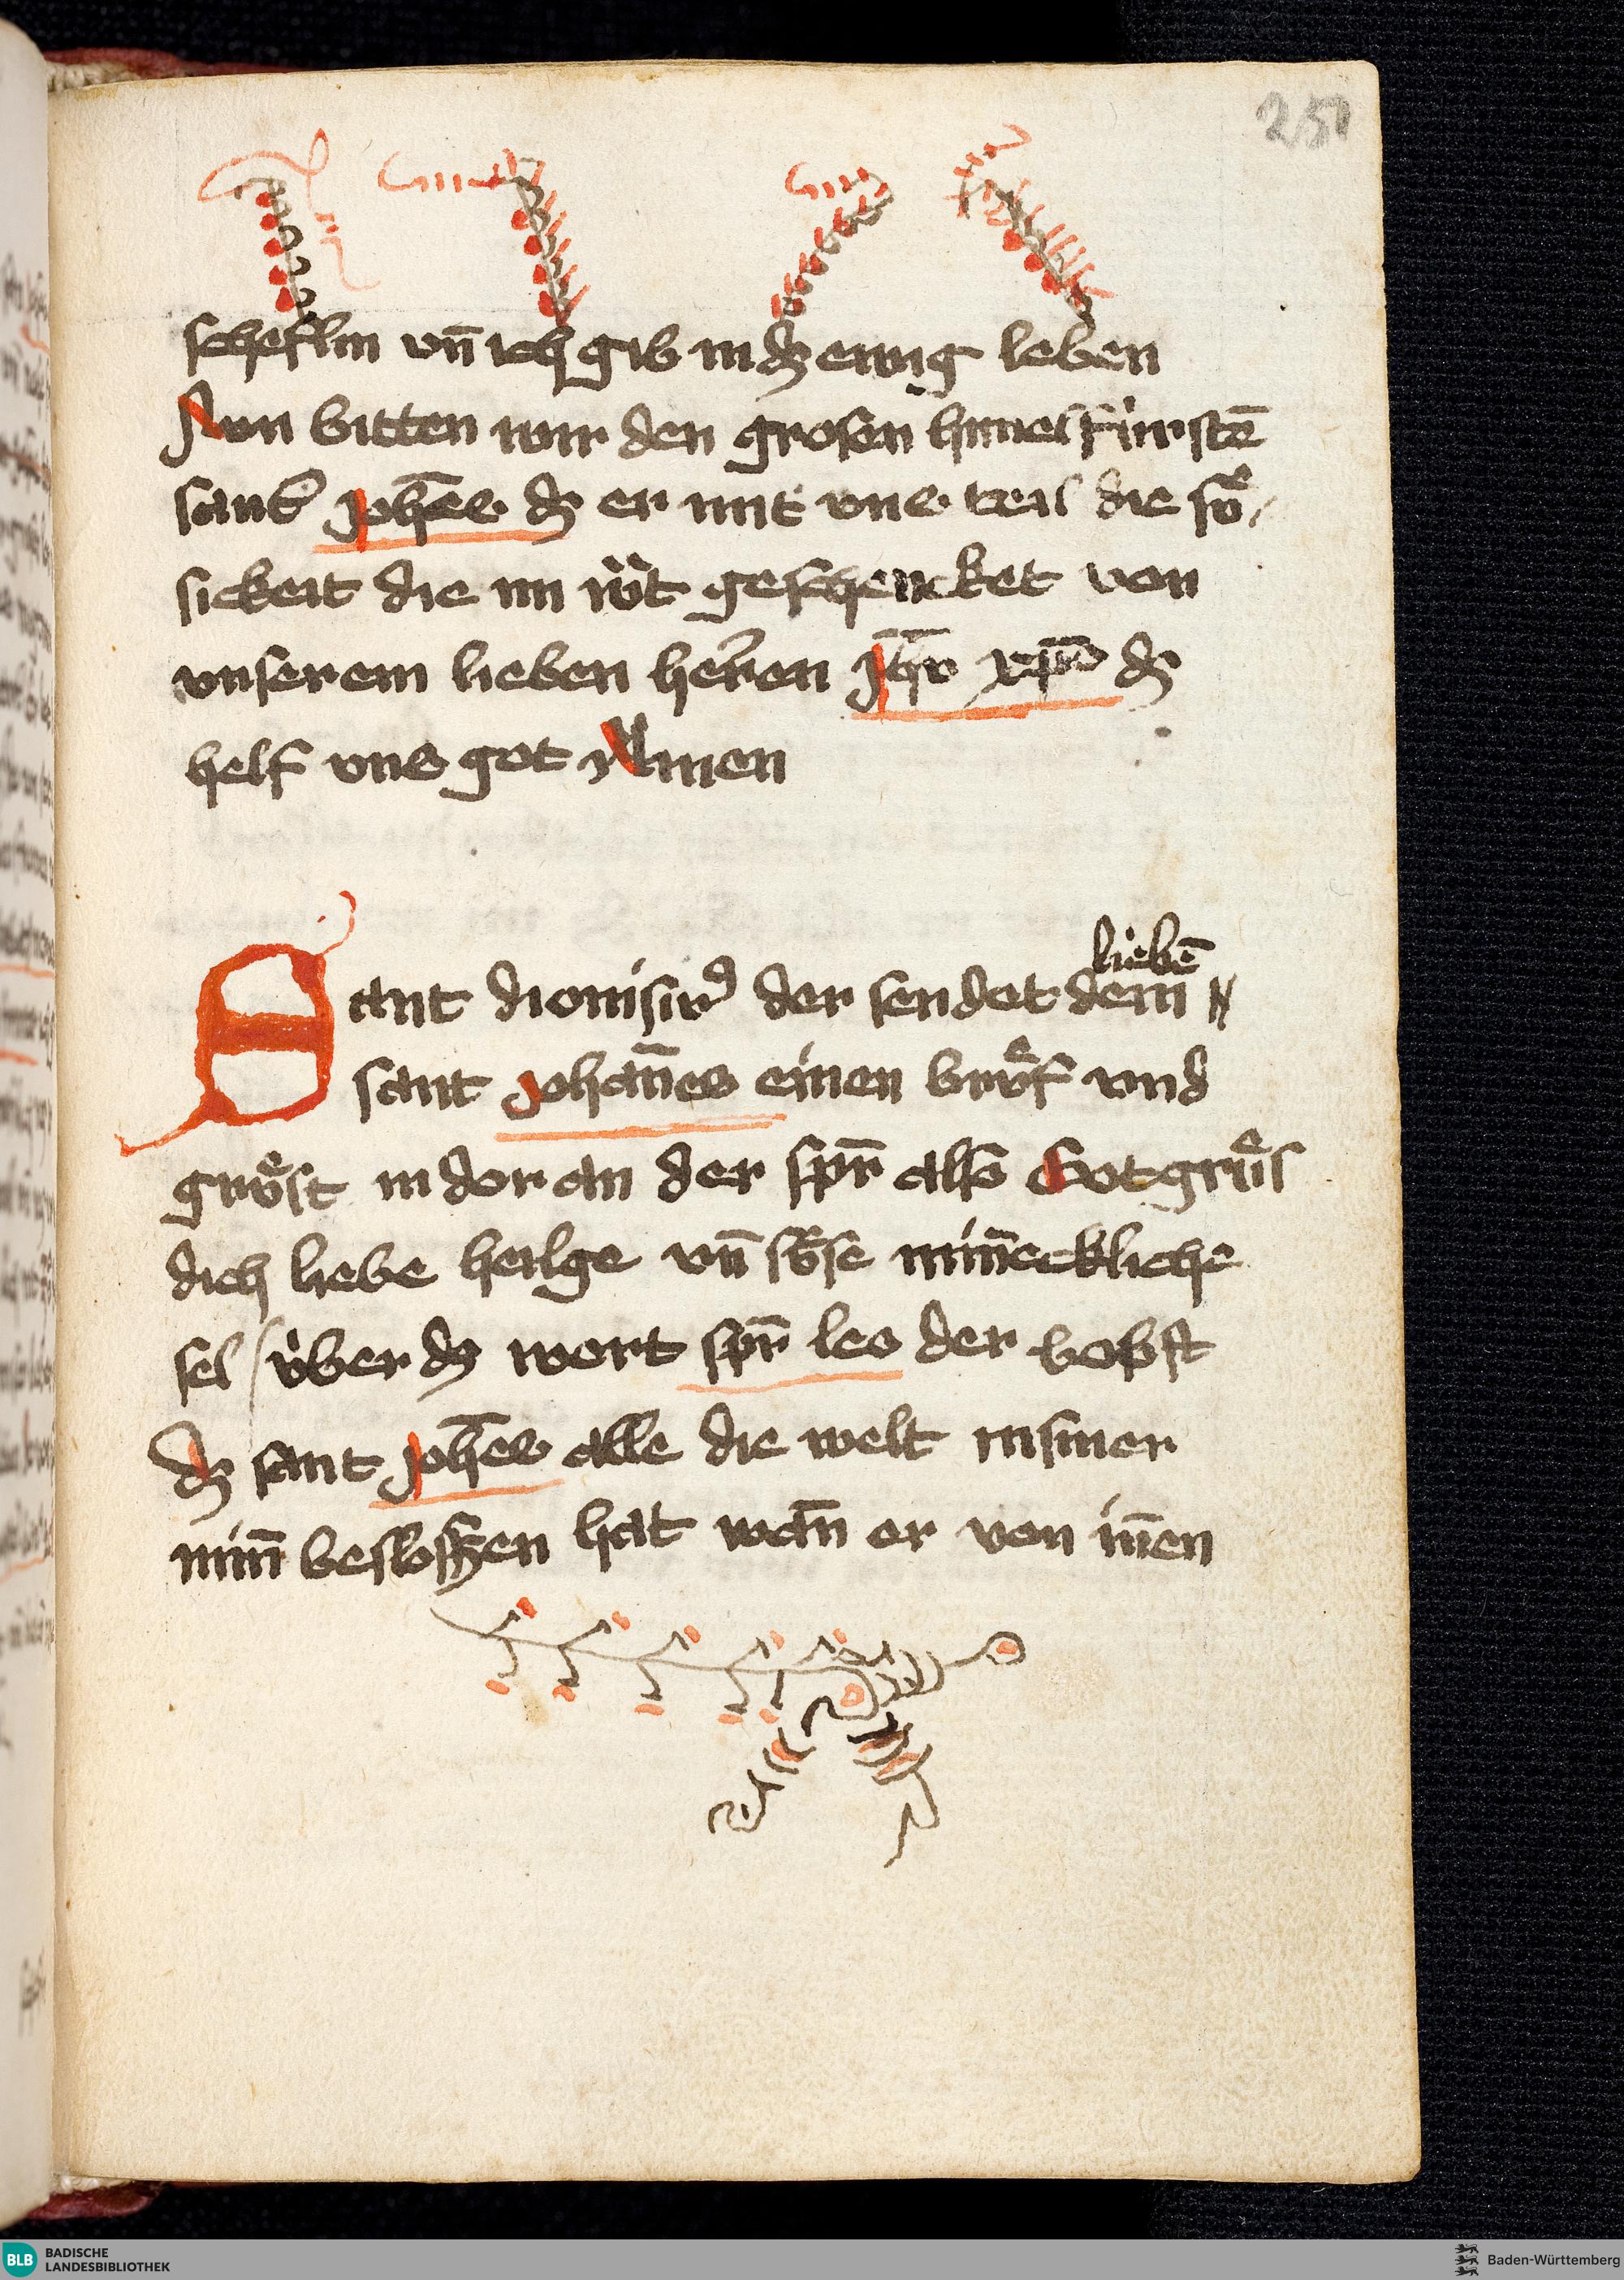 251
scheflin vn̄ ich gib in dz ewig leben
Nun bitten wir den grosen himelfürstē
sant Johēs dz er mit uns teil die sv̊
sickeit die im wͦt geschencket von
unserem lieben heren Jhū xp̄o dz
helf vns got Amen
lieben̄
Sant dionisius der sendet dem
sant Johan̄es einen brieͦf vnd
grvͦst in dor an der spr̄ also Got grüͤs
dich liebe heilge vn̄ svͤse min̄eckliche
sel / v̈ber dz wort spr̄ leo der bobst
dz sant Johēs alle die welt in siner
min̄ beslossen hat wan̄ er von in̄en
BLB BADISCHE
LANDESBIBLIOTHEK
Baden-Württemberg